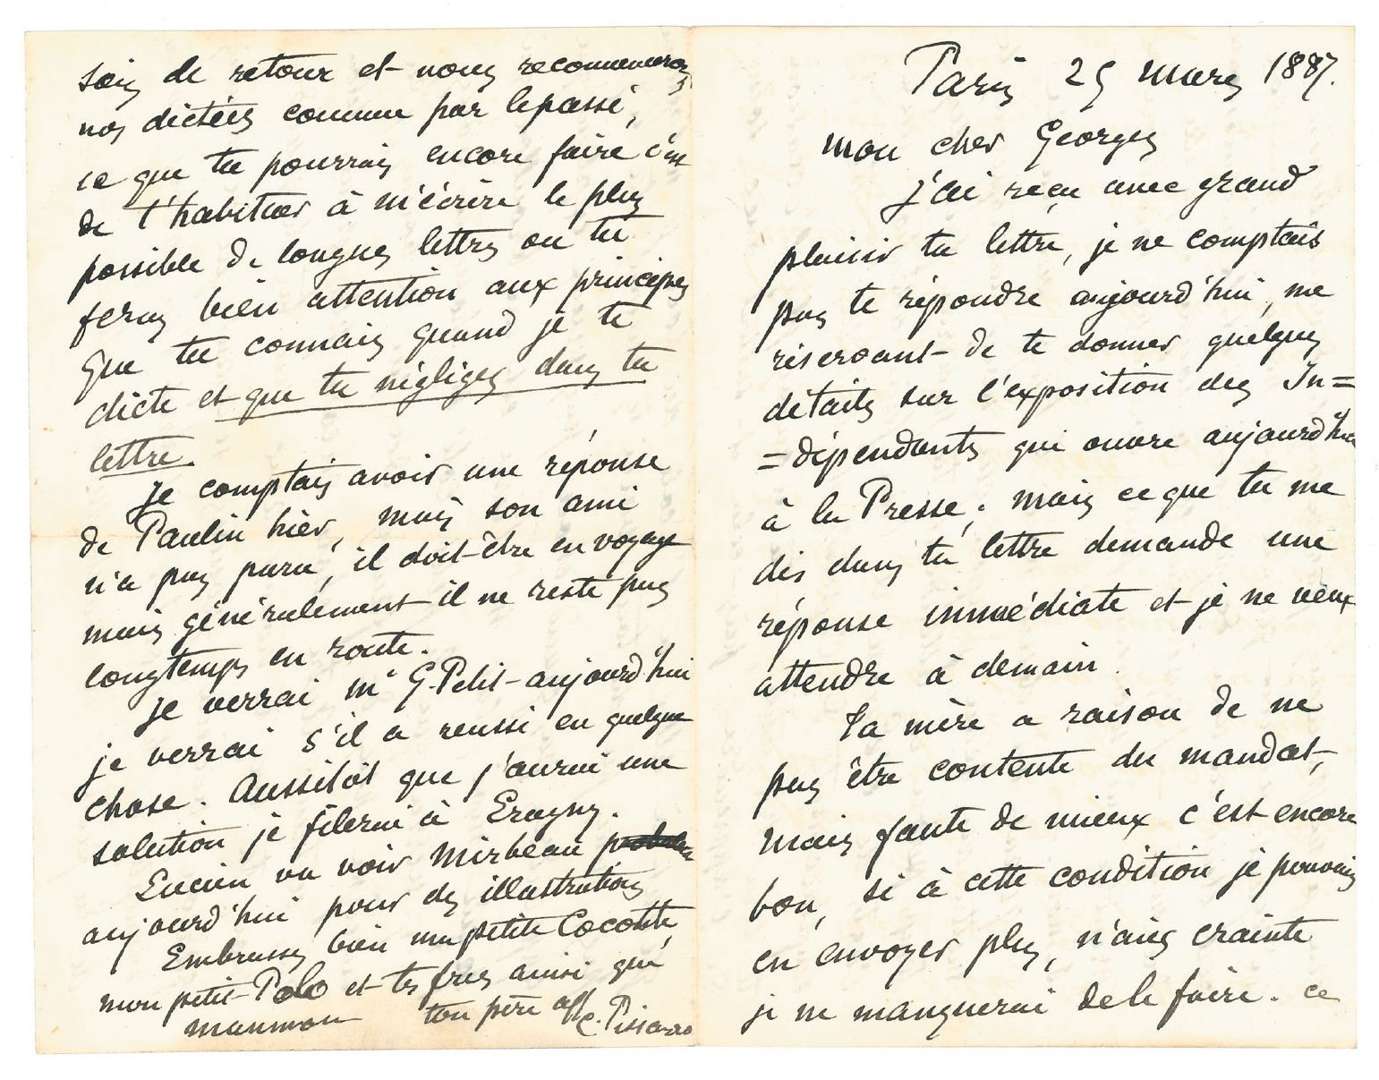 Paris 25 mars 1887.
mon cher Georges
j'ai reçu avec grand
plaisir ta lettre, je ne comptais
pas te répondre aujourd'hui, me
réservant de te donner quelques
détails sur l'exposition des In=
=dépendants qui ouvre aujourd'hui
à la Presse; mais ce que tu me
dis dans ta lettre demande une
réponse immédiate et je ne veux
attendre à demain.
Ta mère a raison de ne
pas être contente du mandat,
mais faute de mieux c'est encore
bon, si à cette condition je pouvais
en envoyer plus, n'aies crainte
je ne manquerai de le faire. ce
sois de retour et nous recommencerons
nos dictées comme par le passé,
ce que tu pourrais encore faire c'est
de t'habituer à m'écrire le plus
possible de longues lettres ou tu
feras bien attention aux principes
que tu connais quand je te
dicte et que tu négliges dans ta
lettre.
Je comptais avoir une réponse
de Paulin hier, mais son ami
n'a pas paru, il doit être en voyage
mais généralement il ne reste pas
longtemps en route.
Je verrai Mr G. Petit aujourd'hui
je verrai s'il a reussi en quelque
chose. Aussitôt que j'aurai une
solution je filerai à Eragny.
Lucien va voir Mirbeau
aujourd'hui pour des illustrations
Embrasses bien ma petite Cocotte,
mon petit Polo et tes frès ainsi que
manman ton père aff C. Pissarro